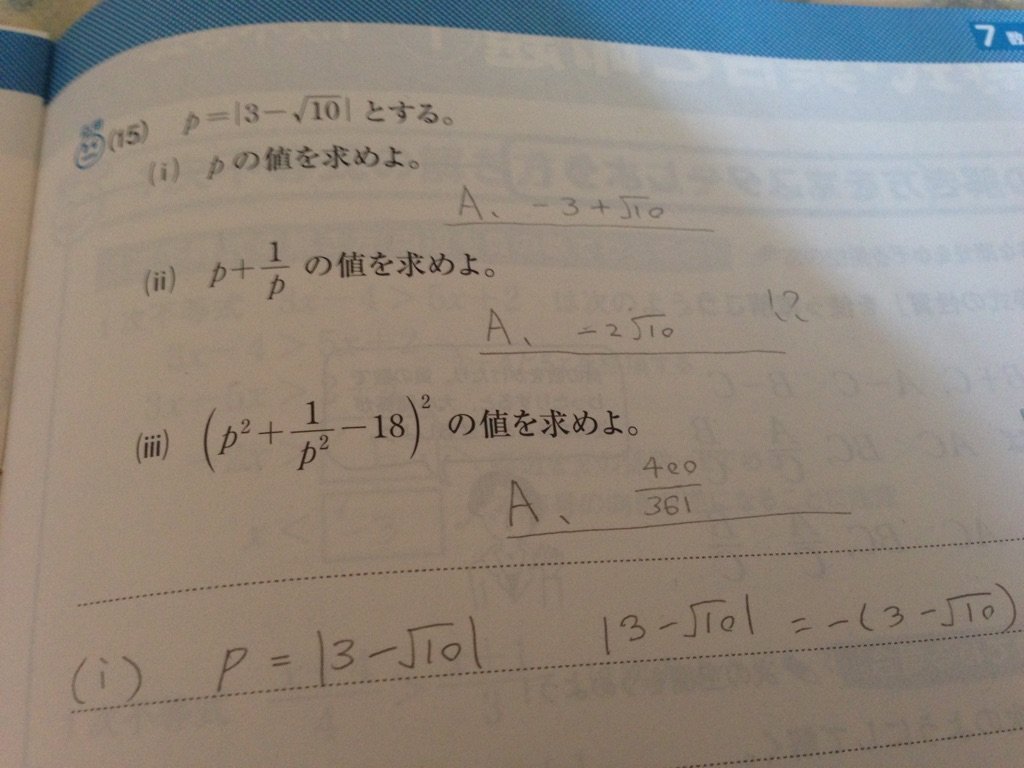 7
(15) p=|3−√10| とする。
(i) pの値を求めよ。
A、 −3+√10
(ii) p+1/p の値を求めよ。
A、 =2√10
(iii) (p²+1/p²−18)² の値を求めよ。
A、 400/361
(i) P = |3−√10| |3−√10| = −(3−√10)